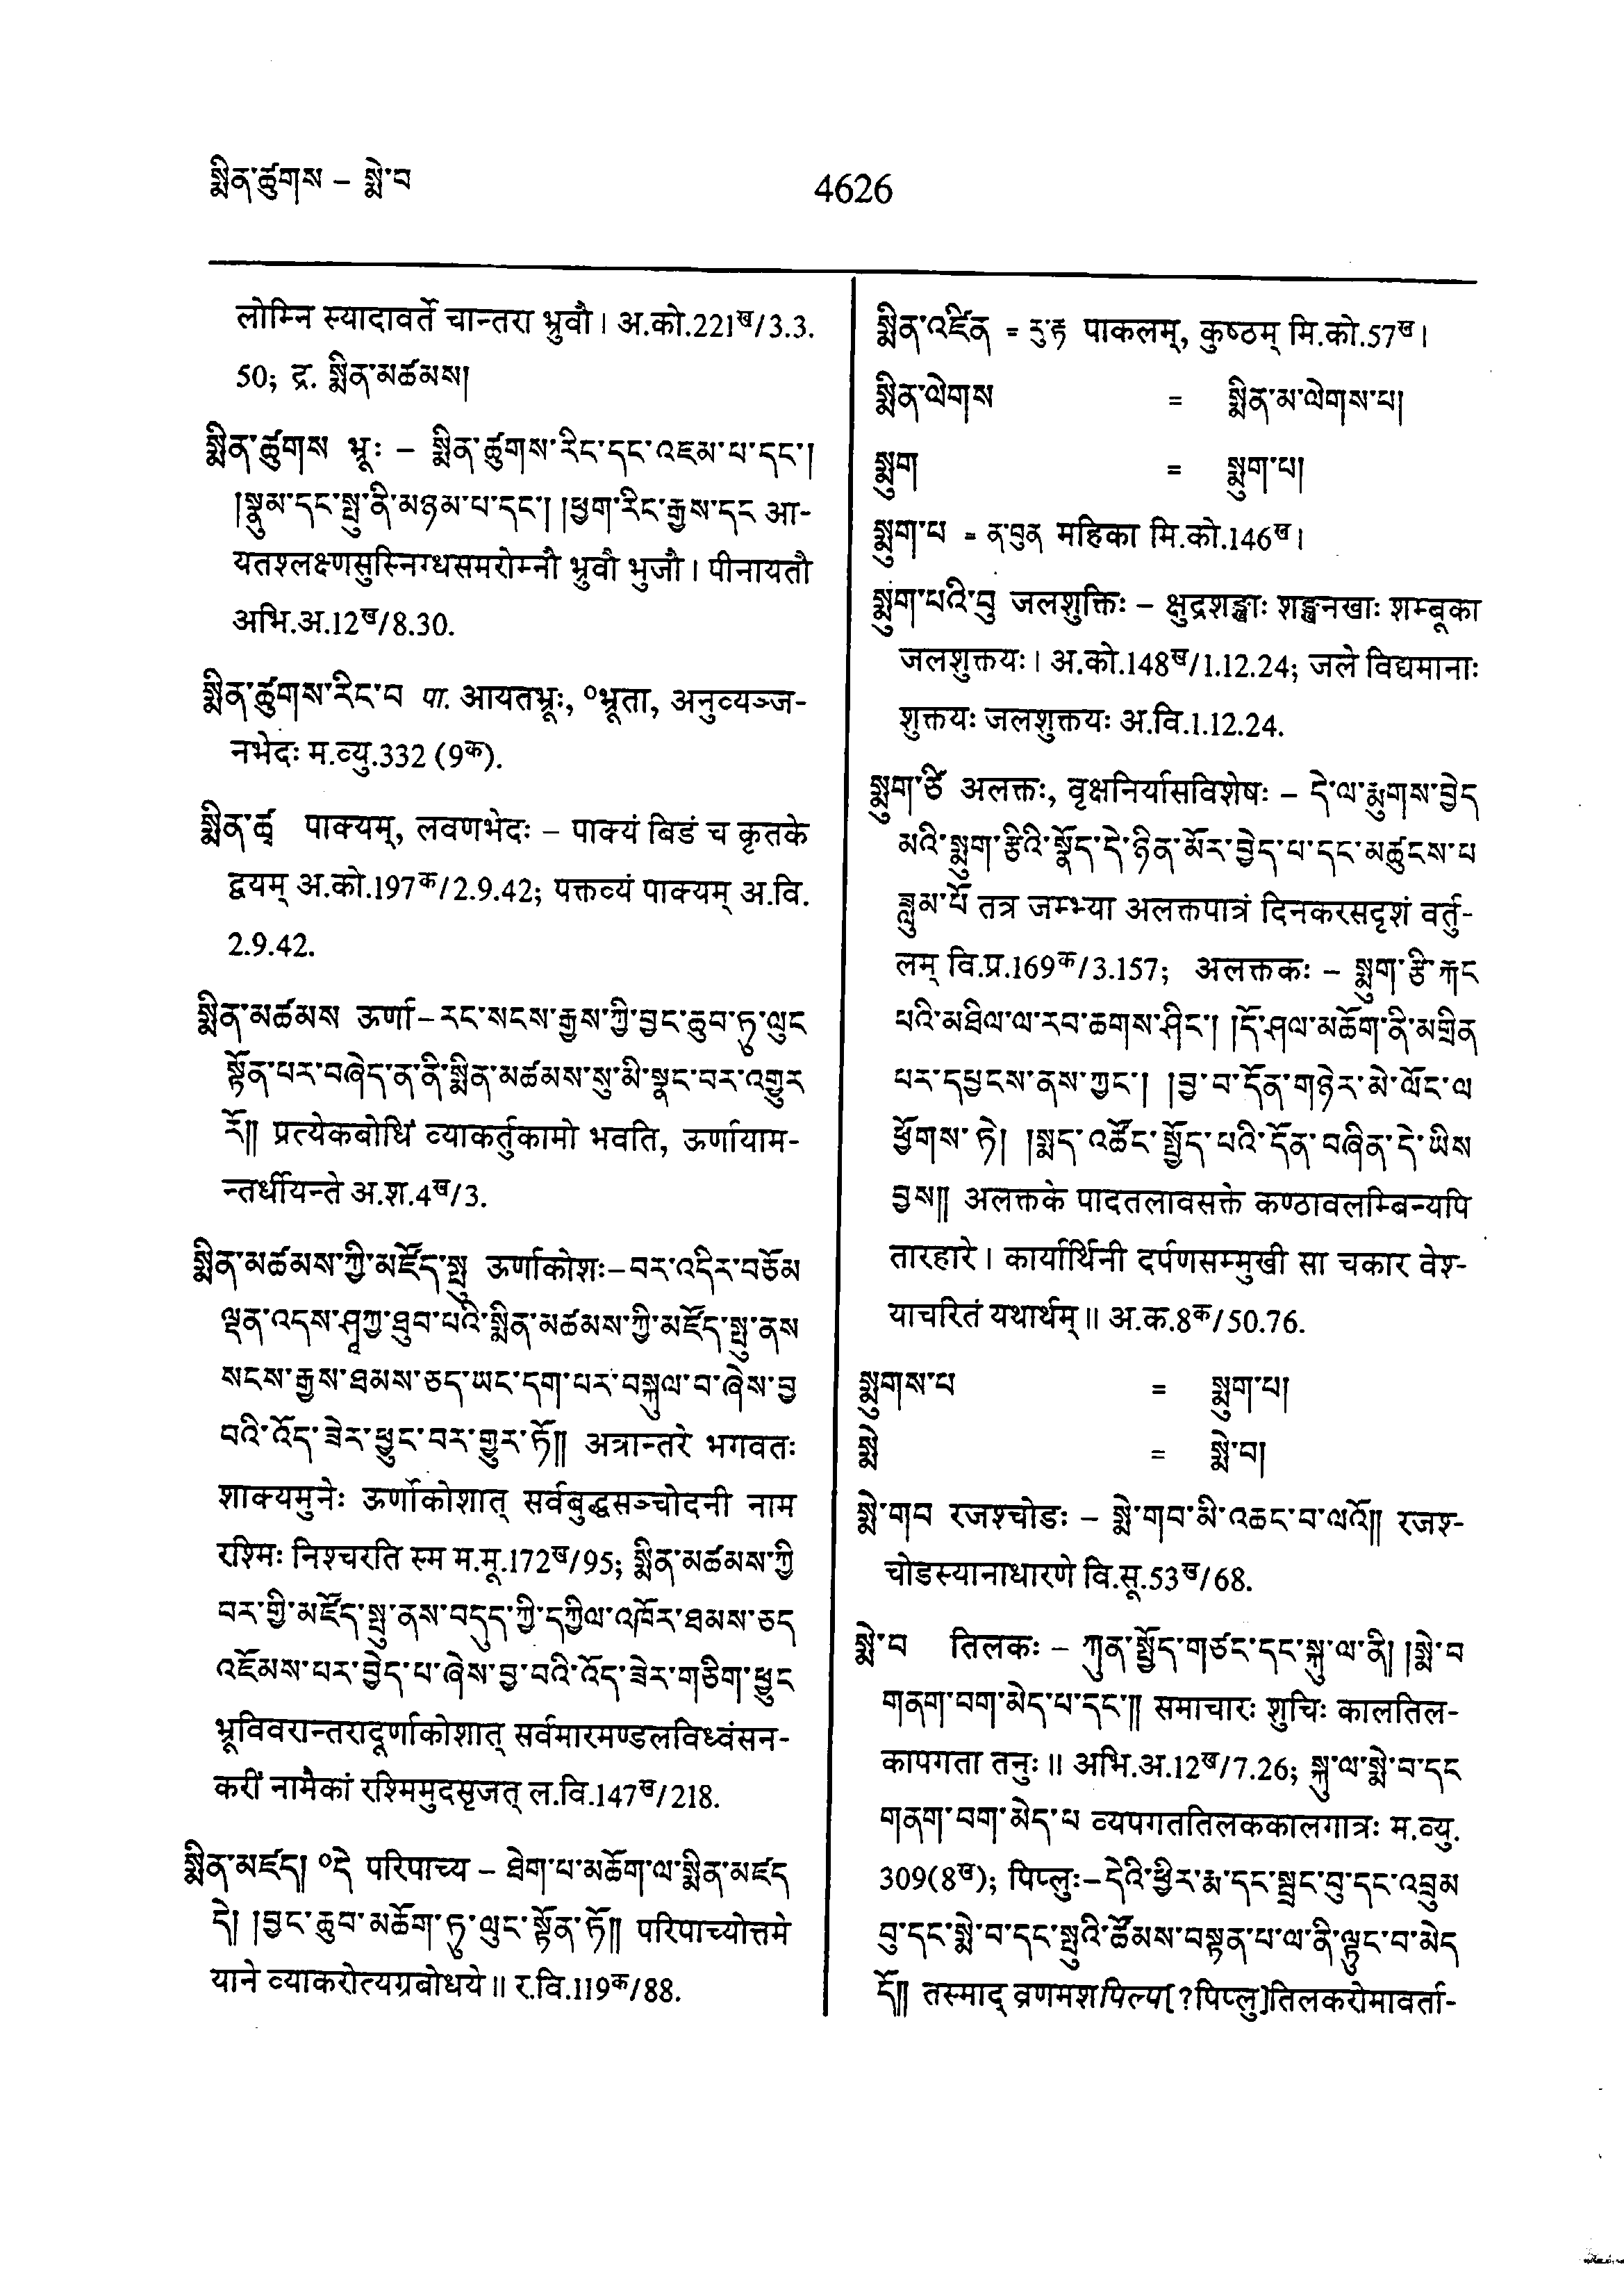 སྨིན་ཚུགས – སྨེ་བ
4626
लोम्नि स्यादावर्ते चान्तरा भ्रुवौ। अ.को.221ख/3.3.
50; द्र. སྨིན་མཚམས།
སྨིན་ཚུགས भ्रूः – སྨིན་ཚུགས་རིང་དང་འཇམ་པ་དང་།
།སྣུམ་དང་སྤུ་ནི་མཉམ་པ་དང་། །ཕྱག་རིང་རྒྱས་དང आ-
यतश्लक्ष्णसुस्निग्धसमरोम्नौ भ्रुवौ भुजौ। पीनायतौ
अभि.अ.12ख/8.30.
སྨིན་ཚུགས་རིང་བ पा. आयतभ्रूः, ०भ्रूता, अनुव्यञ्ज-
नभेदः म.व्यु.332 (9क).
སྨིན་ཚྭ पाक्यम्, लवणभेदः – पाक्यं बिडं च कृतके
द्वयम् अ.को.197क/2.9.42; पक्तव्यं पाक्यम् अ.वि.
2.9.42.
སྨིན་མཚམས ऊर्णा – རང་སངས་རྒྱས་ཀྱི་བྱང་ཆུབ་ཏུ་ལུང
སྟོན་པར་བཞེད་ན་ནི་སྨིན་མཚམས་སུ་མི་སྣང་བར་འགྱུར
རོ༎ प्रत्येकबोधिं व्याकर्तुकामो भवति, ऊर्णायाम-
न्तर्धीयन्ते अ.श.4ख/3.
སྨིན་མཚམས་ཀྱི་མཛོད་སྤུ ऊर्णाकोशः – བར་འདིར་བཅོམ
ལྡན་འདས་ཤཱཀྱ་ཐུབ་པའི་སྨིན་མཚམས་ཀྱི་མཛོད་སྤུ་ནས
སངས་རྒྱས་ཐམས་ཅད་ཡང་དག་པར་བསྐུལ་བ་ཞེས་བྱ
བའི་འོད་ཟེར་ཕྱུང་བར་གྱུར་ཏོ༎ अत्रान्तरे भगवतः
शाक्यमुनेः ऊर्णाकोशात् सर्वबुद्धसञ्चोदनी नाम
रश्मिः निश्चरति स्म म.मू.172ख/95; སྨིན་མཚམས་ཀྱི
བར་གྱི་མཛོད་སྤུ་ནས་བདུད་ཀྱི་དཀྱིལ་འཁོར་ཐམས་ཅད
འཇོམས་པར་བྱེད་པ་ཞེས་བྱ་བའི་འོད་ཟེར་གཅིག་ཕྱུང
भ्रूविवरान्तरादूर्णाकोशात् सर्वमारमण्डलविध्वंसन-
करीं नामैकां रश्मिमुदसृजत् ल.वि.147ख/218.
སྨིན་མཛད། ०དེ परिपाच्य – ཐེག་པ་མཆོག་ལ་སྨིན་མཛད
དེ། །བྱང་ཆུབ་མཆོག་ཏུ་ལུང་སྟོན་ཏོ༎ परिपाच्योत्तमे
याने व्याकरोत्यग्रबोधये॥ र.वि.119क/88.
སྨིན་འཛིན = རུ་རྟ पाकलम्, कुष्ठम् मि.को.57ख।
སྨིན་ལེགས = སྨིན་མ་ལེགས་པ།
སྨུག = སྨུག་པ།
སྨུག་པ = ན་བུན महिका मि.को.146ख।
སྨུག་པའི་བུ जलशुक्तिः – क्षुद्रशङ्खाः शङ्खनखाः शम्बूका
जलशुक्तयः। अ.को.148ख/1.12.24; जले विद्यमानाः
शुक्तयः जलशुक्तयः अ.वि.1.12.24.
སྨུག་ཙི अलक्तः, वृक्षनिर्यासविशेषः – དེ་ལ་རྨུགས་བྱེད
མའི་སྨུག་རྩིའི་སྣོད་དེ་ཉིན་མོར་བྱེད་པ་དང་མཚུངས་པ
ཟླུམ་པོ तत्र जम्भ्या अलक्तपात्रं दिनकरसदृशं वर्तु-
लम् वि.प्र.169क/3.157; अलक्तकः – སྨུག་རྩི་རྐང
པའི་མཐིལ་ལ་རབ་ཆགས་ཤིང་། །དོ་ཤལ་མཆོག་ནི་མགྲིན
པར་དཔྱངས་ནས་ཀྱང་། །བྱ་བ་དོན་གཉེར་མེ་ལོང་ལ
ཕྱོགས་ཏེ། །སྨད་འཚོང་སྤྱོད་པའི་དོན་བཞིན་དེ་ཡིས
བྱས༎ अलक्तके पादतलावसक्ते कण्ठावलम्बिन्यपि
तारहारे। कार्यार्थिनी दर्पणसम्मुखी सा चकार वेश्-
याचरितं यथार्थम्॥ अ.क.8क/50.76.
སྨུགས་པ = སྨུག་པ།
སྨེ = སྨེ་བ།
སྨེ་གབ रजश्चोडः – སྨེ་གབ་མི་འཆང་བ་ལའོ༎ रजश्-
चोडस्यानाधारणे वि.सू.53ख/68.
སྨེ་བ तिलकः – ཀུན་སྤྱོད་གཙང་དང་སྐུ་ལ་ནི། །སྨེ་བ
གནག་བག་མེད་པ་དང་༎ समाचारः शुचिः कालतिल-
कापगता तनुः॥ अभि.अ.12ख/7.26; སྐུ་ལ་སྨེ་བ་དང
གནག་བག་མེད་པ व्यपगततिलककालगात्रः म.व्यु.
309(8ख); पिप्लुः – དེའི་ཕྱིར་རྨ་དང་སྦྲང་བུ་དང་འབྲུམ
བུ་དང་སྨེ་བ་དང་སྤུའི་ཚོམས་བསྟན་པ་ལ་ནི་ལྟུང་བ་མེད
དོ༎ तस्माद् व्रणमशपिल्प(?पिप्लु)तिलकरोमावर्ता-